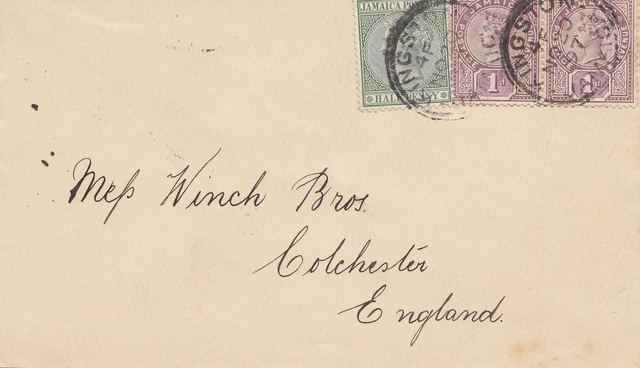 JAMAICA
HALFPENNY
1D
KINGSTON
KINGSTON
Meſs Winch Bros.
Colchester
England.